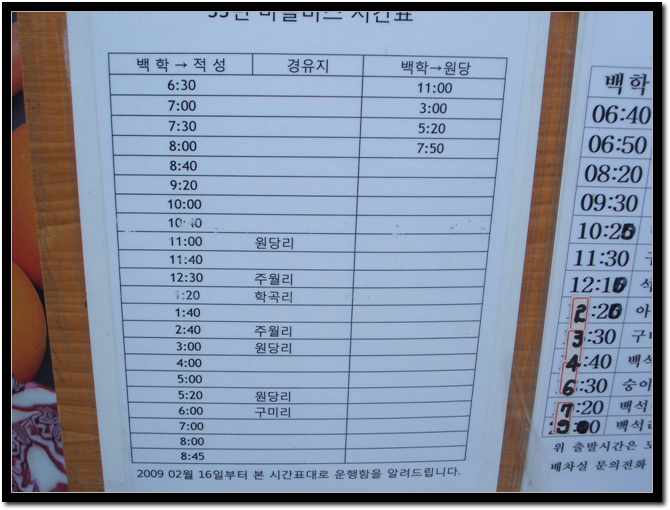 마을버스 시간표
백 학 → 적 성 경유지 백학→원당
6:30 11:00
7:00 3:00
7:30 5:20
8:00 7:50
8:40
9:20
10:00
10:40
11:00 원당리
11:40
12:30 주월리
1:20 학곡리
1:40
2:40 주월리
3:00 원당리
4:00
5:00
5:20 원당리
6:00 구미리
7:00
8:00
8:45
2009 02월 16일부터 본 시간표대로 운행함을 알려드립니다.
백 학
06:40
06:50
08:20
09:30
10:25
11:30
12:15
2:25
3:30
4:40 백석
6:30 숭아
7:20 백석
9:00 백석리
위 출발시간은
배차실 문의전화